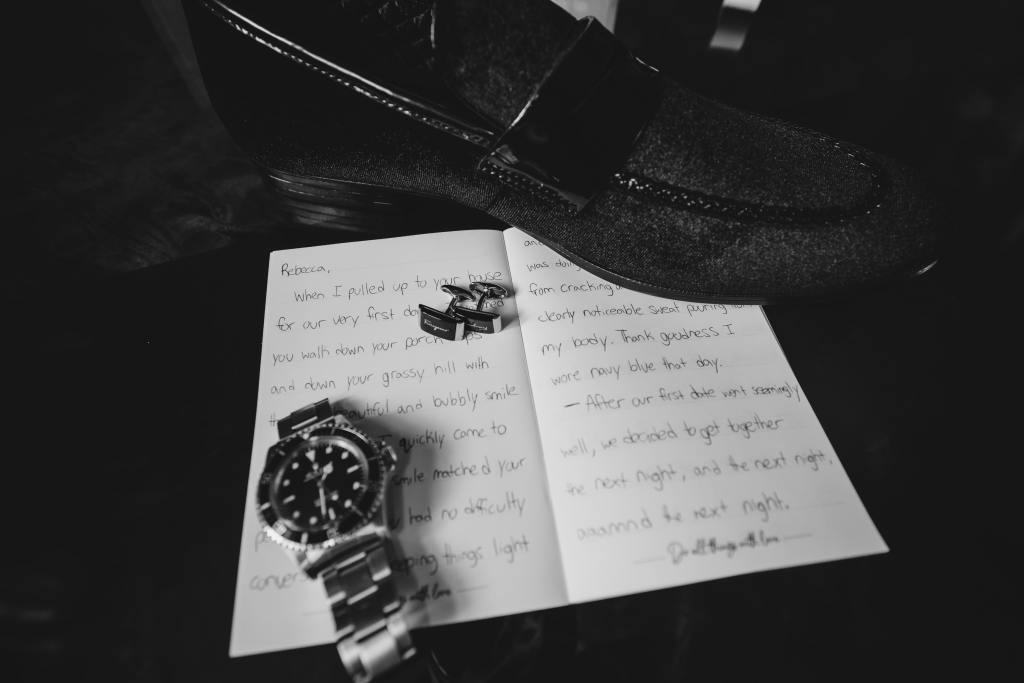 Rebecca,
When I pulled up to your house
for our very first
you walk down your porch
and down your grassy hill with
beautiful and bubbly smile
I quickly came to
smile matched your
had no difficulty
things light
with love
was
from cracking
clearly noticeable sweat pouring from
my body. Thank goodness I
wore navy blue that day.
— After our first date went seemingly
well, we decided to get together
the next night, and the next night,
aaannnd the next night.
Do all things with love